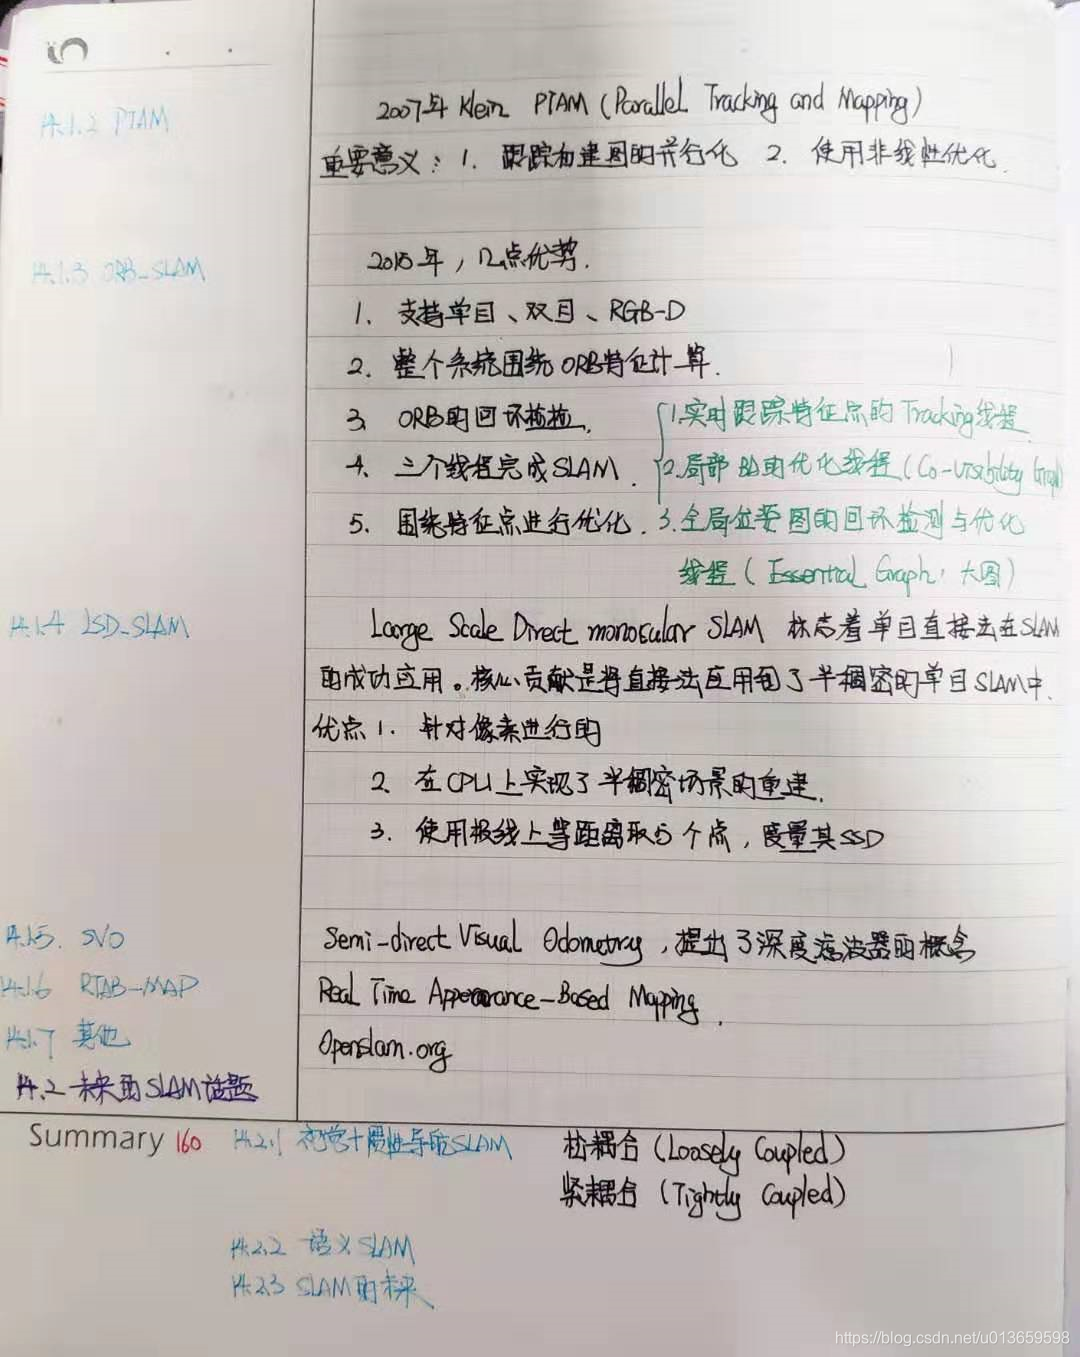 14.1.2 PTAM
2007年 Klein PTAM (Parallel Tracking and Mapping)
重要意义: 1. 跟踪和建图的并行化 2. 使用非线性优化.
14.1.3 ORB_SLAM
2015年, 几点优势.
1. 支持单目、双目、RGB-D
2. 整个系统围绕ORB特征计算.
3. ORB的回环检测.
4. 三个线程完成SLAM.
5. 围绕特征点进行优化.
1.实时跟踪特征点的Tracking线程.
2.局部BA的优化线程(Co-Visibility Graph)
3.全局位姿图的回环检测与优化
线程(Essential Graph, 大图)
14.1.4 LSD_SLAM
Large Scale Direct monocular SLAM 标志着单目直接法在SLAM
的成功应用。核心贡献是将直接法应用到了半稠密的单目SLAM中.
优点 1. 针对像素进行的
2. 在CPU上实现了半稠密场景的重建.
3. 使用极线上等距离取5个点, 度量其SSD
14.1.5. SVO
Semi-direct Visual Odometry, 提出了深度滤波器的概念
14.1.6 RTAB-MAP
Real Time Appearance-Based Mapping.
14.1.7 其他
Openslam.org
14.2 未来的SLAM话题
Summary 160
14.2.1 视觉+惯性导航SLAM
松耦合 (Loosely Coupled)
紧耦合 (Tightly Coupled)
14.2.2 语义SLAM
14.2.3 SLAM的未来
https://blog.csdn.net/u013659598